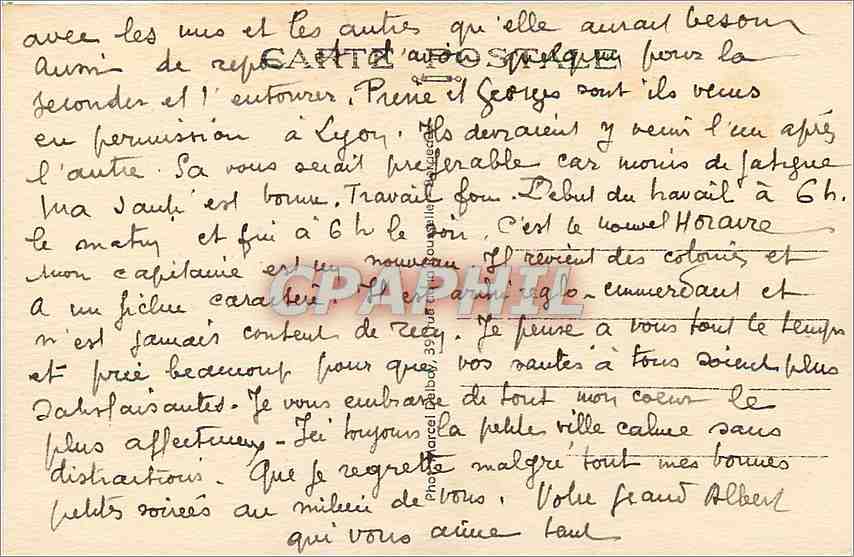 avec les uns et les autres qu'elle aurait besoin
aussi de repos et d'avoir quelqu'un pour la
CARTE POSTALE
seconder et l'entourer. Pierre et Georges sont ils venus
en permission à Lyon. Ils devraient y venir l'un après
l'autre. Sa vous serait preferable car moins de fatigue
Ma santé est bonne. Travail fou. Debut du travail à 6h.
le matin et fini à 6h le soir. C'est le nouvel Horaire
Mon capitaine est un nouveau Il revient des colonies et
a un fichu caractère. Il est archi reglo-emmerdant et
n'est jamais content de rien. Je pense à vous tout le temps
et prie beaucoup pour que vos santés à tous soient plus
satisfaisantes. Je vous embrasse de tout mon coeur le
plus affectueux - Ici toujours la petite ville calme sans
distractions. Que je regrette malgré tout mes bonnes
petites soirées au milieu de vous. Votre grand Albert
qui vous aime tant
CPAPHIL
Photo Marcel Delboy, 39